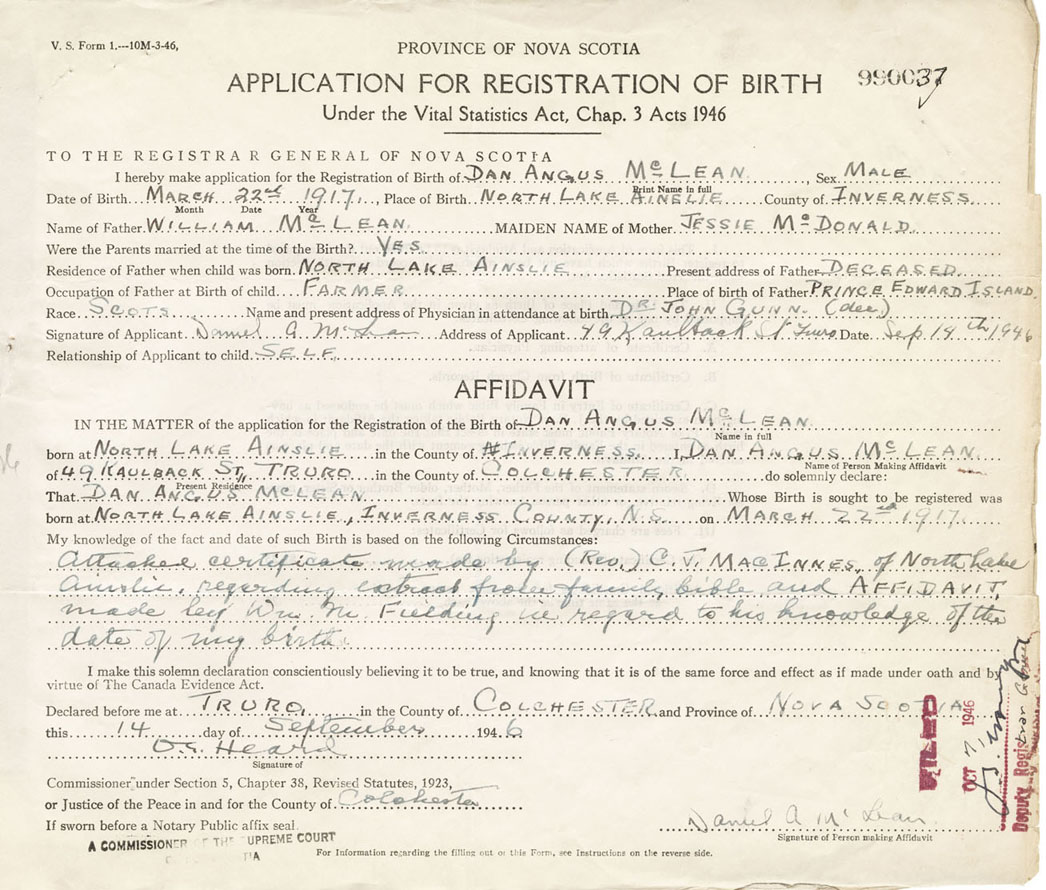 V. S. Form 1.---10M-3-46,
PROVINCE OF NOVA SCOTIA
APPLICATION FOR REGISTRATION OF BIRTH
990037
Under the Vital Statistics Act, Chap. 3 Acts 1946
TO THE REGISTRAR GENERAL OF NOVA SCOTIA
I hereby make application for the Registration of Birth of DAN ANGUS McLEAN, Sex MALE
Print Name in full
Date of Birth MARCH 22nd 1917, Place of Birth NORTH LAKE AINSLIE County of INVERNESS
Month Date Year
Name of Father WILLIAM McLEAN MAIDEN NAME of Mother JESSIE McDONALD
Were the Parents married at the time of the Birth? YES
Residence of Father when child was born NORTH LAKE AINSLIE Present address of Father DECEASED
Occupation of Father at Birth of child FARMER Place of birth of Father PRINCE EDWARD ISLAND
Race SCOTS Name and present address of Physician in attendance at birth DR JOHN GUNN (dec)
Signature of Applicant Daniel A. McLean Address of Applicant 49 Kaulback St Truro Date Sep 14th 1946
Relationship of Applicant to child SELF
AFFIDAVIT
IN THE MATTER of the application for the Registration of the Birth of DAN ANGUS McLEAN
Name in full
born at NORTH LAKE AINSLIE in the County of INVERNESS I, DAN ANGUS McLEAN
Name of Person Making Affidavit
of 49 KAULBACK ST, TRURO in the County of COLCHESTER do solemnly declare:
Present Residence
That DAN ANGUS McLEAN Whose Birth is sought to be registered was
born at NORTH LAKE AINSLIE, INVERNESS COUNTY, N.S. on MARCH 22nd 1917
My knowledge of the fact and date of such Birth is based on the following Circumstances:
Attached certificate made by (Rev.) C. V. MACINNES of North Lake
Ainslie, regarding extract from family bible and AFFIDAVIT,
made by Wm. M. Fielding in regard to his knowledge of the
date of my birth.
I make this solemn declaration conscientiously believing it to be true, and knowing that it is of the same force and effect as if made under oath and by
virtue of The Canada Evidence Act.
Declared before me at TRURO in the County of COLCHESTER and Province of NOVA SCOTIA
this 14 day of September 1946
O. S. Heard
Signature of
Commissioner under Section 5, Chapter 38, Revised Statutes, 1923,
or Justice of the Peace in and for the County of Colchester
If sworn before a Notary Public affix seal.
A COMMISSIONER OF THE SUPREME COURT
Daniel A McLean
Signature of Person making Affidavit
For Information regarding the filling out of this Form, see Instructions on the reverse side.
FILED
OCT 1946
Deputy Registrar General